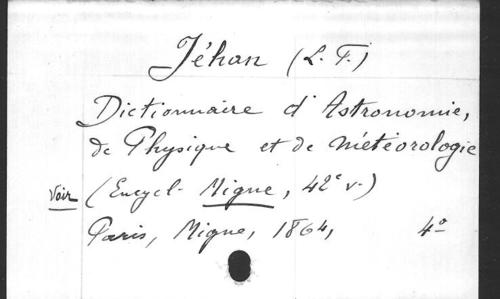 Jéhan (L. F.)
Dictionnaire d'Astronomie,
de Physique et de météorologie
Voir (Encycl. Migne, 42e v.)
Paris, Migne, 1864, 4o